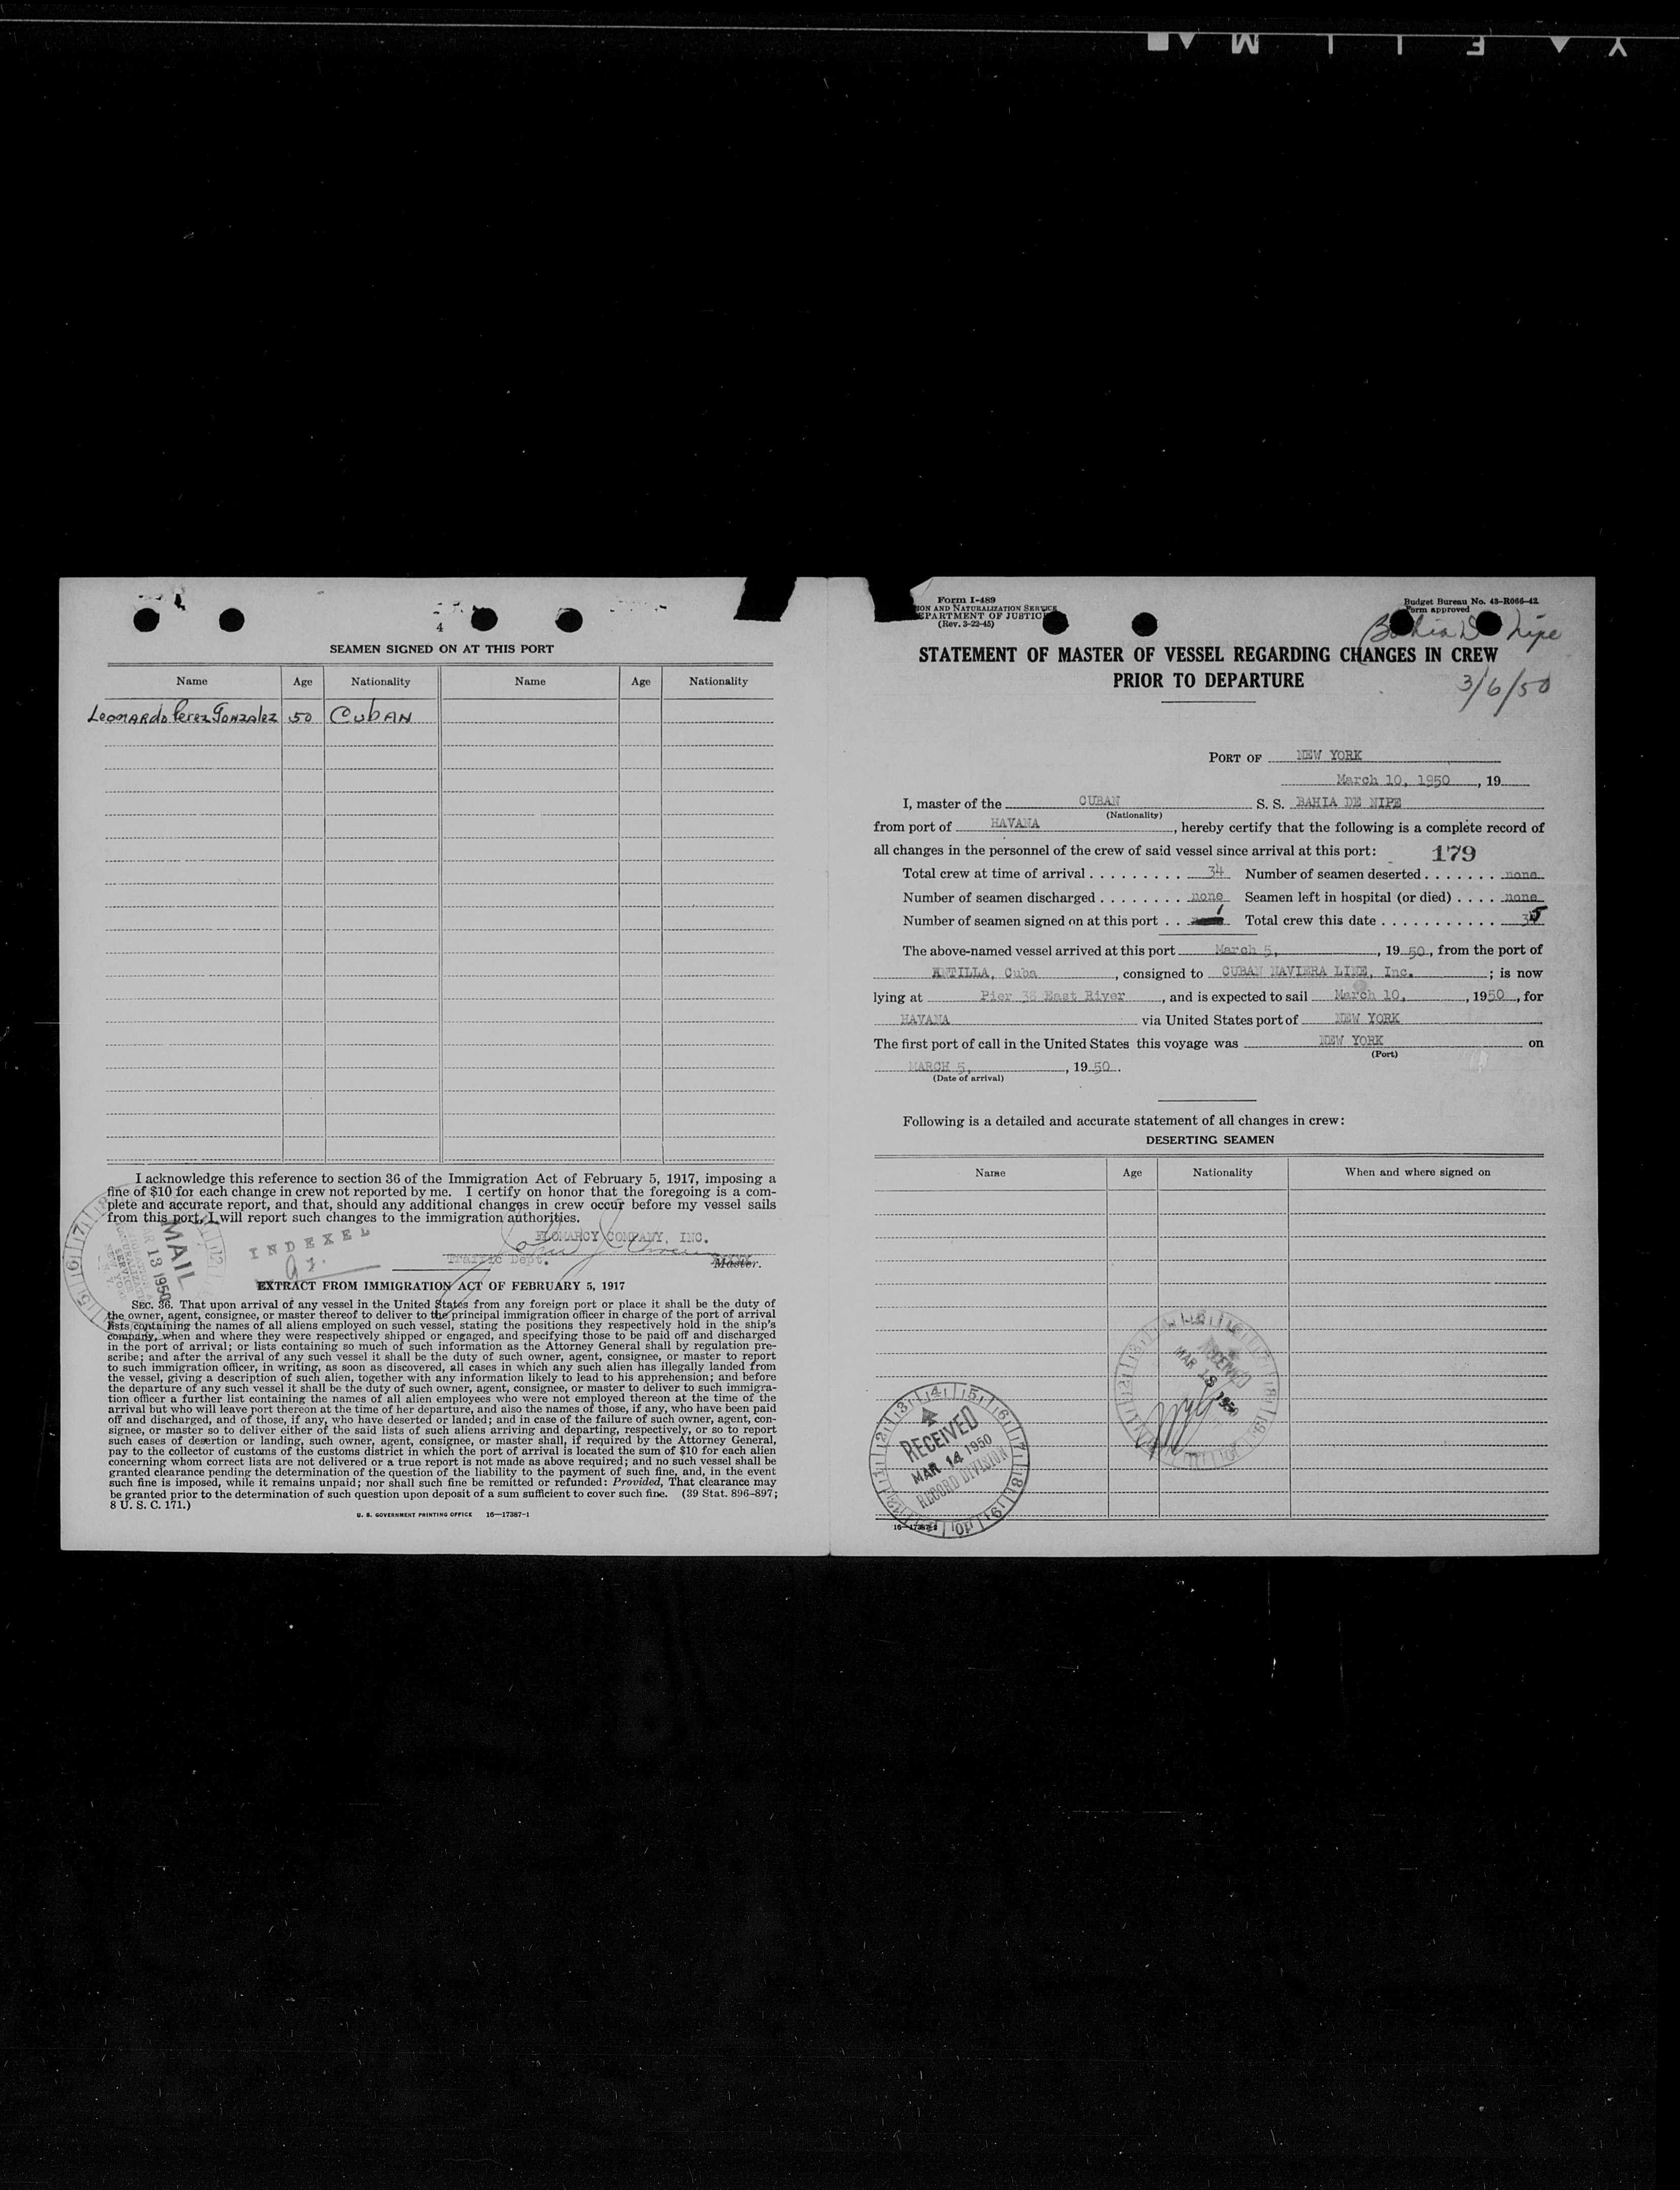 4
SEAMEN SIGNED ON AT THIS PORT
Name Age Nationality Name Age Nationality
Leonardo Perez Gonzalez 50 Cuban
I acknowledge this reference to section 36 of the Immigration Act of February 5, 1917, imposing a
fine of $10 for each change in crew not reported by me. I certify on honor that the foregoing is a com-
plete and accurate report, and that, should any additional changes in crew occur before my vessel sails
from this port, I will report such changes to the immigration authorities.
FLOMARCY COMPANY, INC.
Traffic Dept. Master.
MAIL
MAR 13 1950
INDEXED
EXTRACT FROM IMMIGRATION ACT OF FEBRUARY 5, 1917
SEC. 36. That upon arrival of any vessel in the United States from any foreign port or place it shall be the duty of
the owner, agent, consignee, or master thereof to deliver to the principal immigration officer in charge of the port of arrival
lists containing the names of all aliens employed on such vessel, stating the positions they respectively hold in the ship's
company, when and where they were respectively shipped or engaged, and specifying those to be paid off and discharged
in the port of arrival; or lists containing so much of such information as the Attorney General shall by regulation pre-
scribe; and after the arrival of any such vessel it shall be the duty of such owner, agent, consignee, or master to report
to such immigration officer, in writing, as soon as discovered, all cases in which any such alien has illegally landed from
the vessel, giving a description of such alien, together with any information likely to lead to his apprehension; and before
the departure of any such vessel it shall be the duty of such owner, agent, consignee, or master to deliver to such immigra-
tion officer a further list containing the names of all alien employees who were not employed thereon at the time of the
arrival but who will leave port thereon at the time of her departure, and also the names of those, if any, who have been paid
off and discharged, and of those, if any, who have deserted or landed; and in case of the failure of such owner, agent, con-
signee, or master so to deliver either of the said lists of such aliens arriving and departing, respectively, or so to report
such cases of desertion or landing, such owner, agent, consignee, or master shall, if required by the Attorney General,
pay to the collector of customs of the customs district in which the port of arrival is located the sum of $10 for each alien
concerning whom correct lists are not delivered or a true report is not made as above required; and no such vessel shall be
granted clearance pending the determination of the question of the liability to the payment of such fine, and, in the event
such fine is imposed, while it remains unpaid; nor shall such fine be remitted or refunded: Provided, That clearance may
be granted prior to the determination of such question upon deposit of a sum sufficient to cover such fine. (39 Stat. 896-897;
8 U. S. C. 171.)
U. S. GOVERNMENT PRINTING OFFICE 16—17387-1
Form I-489
ION AND NATURALIZATION SERVICE
EPARTMENT OF JUSTICE
(Rev. 3-22-45)
Budget Bureau No. 43-R066-42
Form approved
Bahia D Nipe
STATEMENT OF MASTER OF VESSEL REGARDING CHANGES IN CREW
PRIOR TO DEPARTURE
3/6/50
PORT OF NEW YORK
March 10, 1950, 19
I, master of the CUBAN S. S. BAHIA DE NIPE
(Nationality)
from port of HAVANA, hereby certify that the following is a complete record of
all changes in the personnel of the crew of said vessel since arrival at this port: 179
Total crew at time of arrival . . . . . . . . . 34 Number of seamen deserted . . . . . . . none
Number of seamen discharged . . . . . . . . none Seamen left in hospital (or died) . . . . none
Number of seamen signed on at this port . . 1 Total crew this date . . . . . . . . . . . 35
The above-named vessel arrived at this port March 5, 1950, from the port of
ANTILLA, Cuba, consigned to CUBAN NAVIERA LINE, Inc.; is now
lying at Pier 38 East River, and is expected to sail March 10, 1950, for
HAVANA via United States port of NEW YORK
The first port of call in the United States this voyage was NEW YORK on
(Port)
MARCH 5, 1950.
(Date of arrival)
Following is a detailed and accurate statement of all changes in crew:
DESERTING SEAMEN
Name Age Nationality When and where signed on
RECEIVED
MAR 13 1950
RECEIVED
MAR 14 1950
RECORD DIVISION
16—17387-1